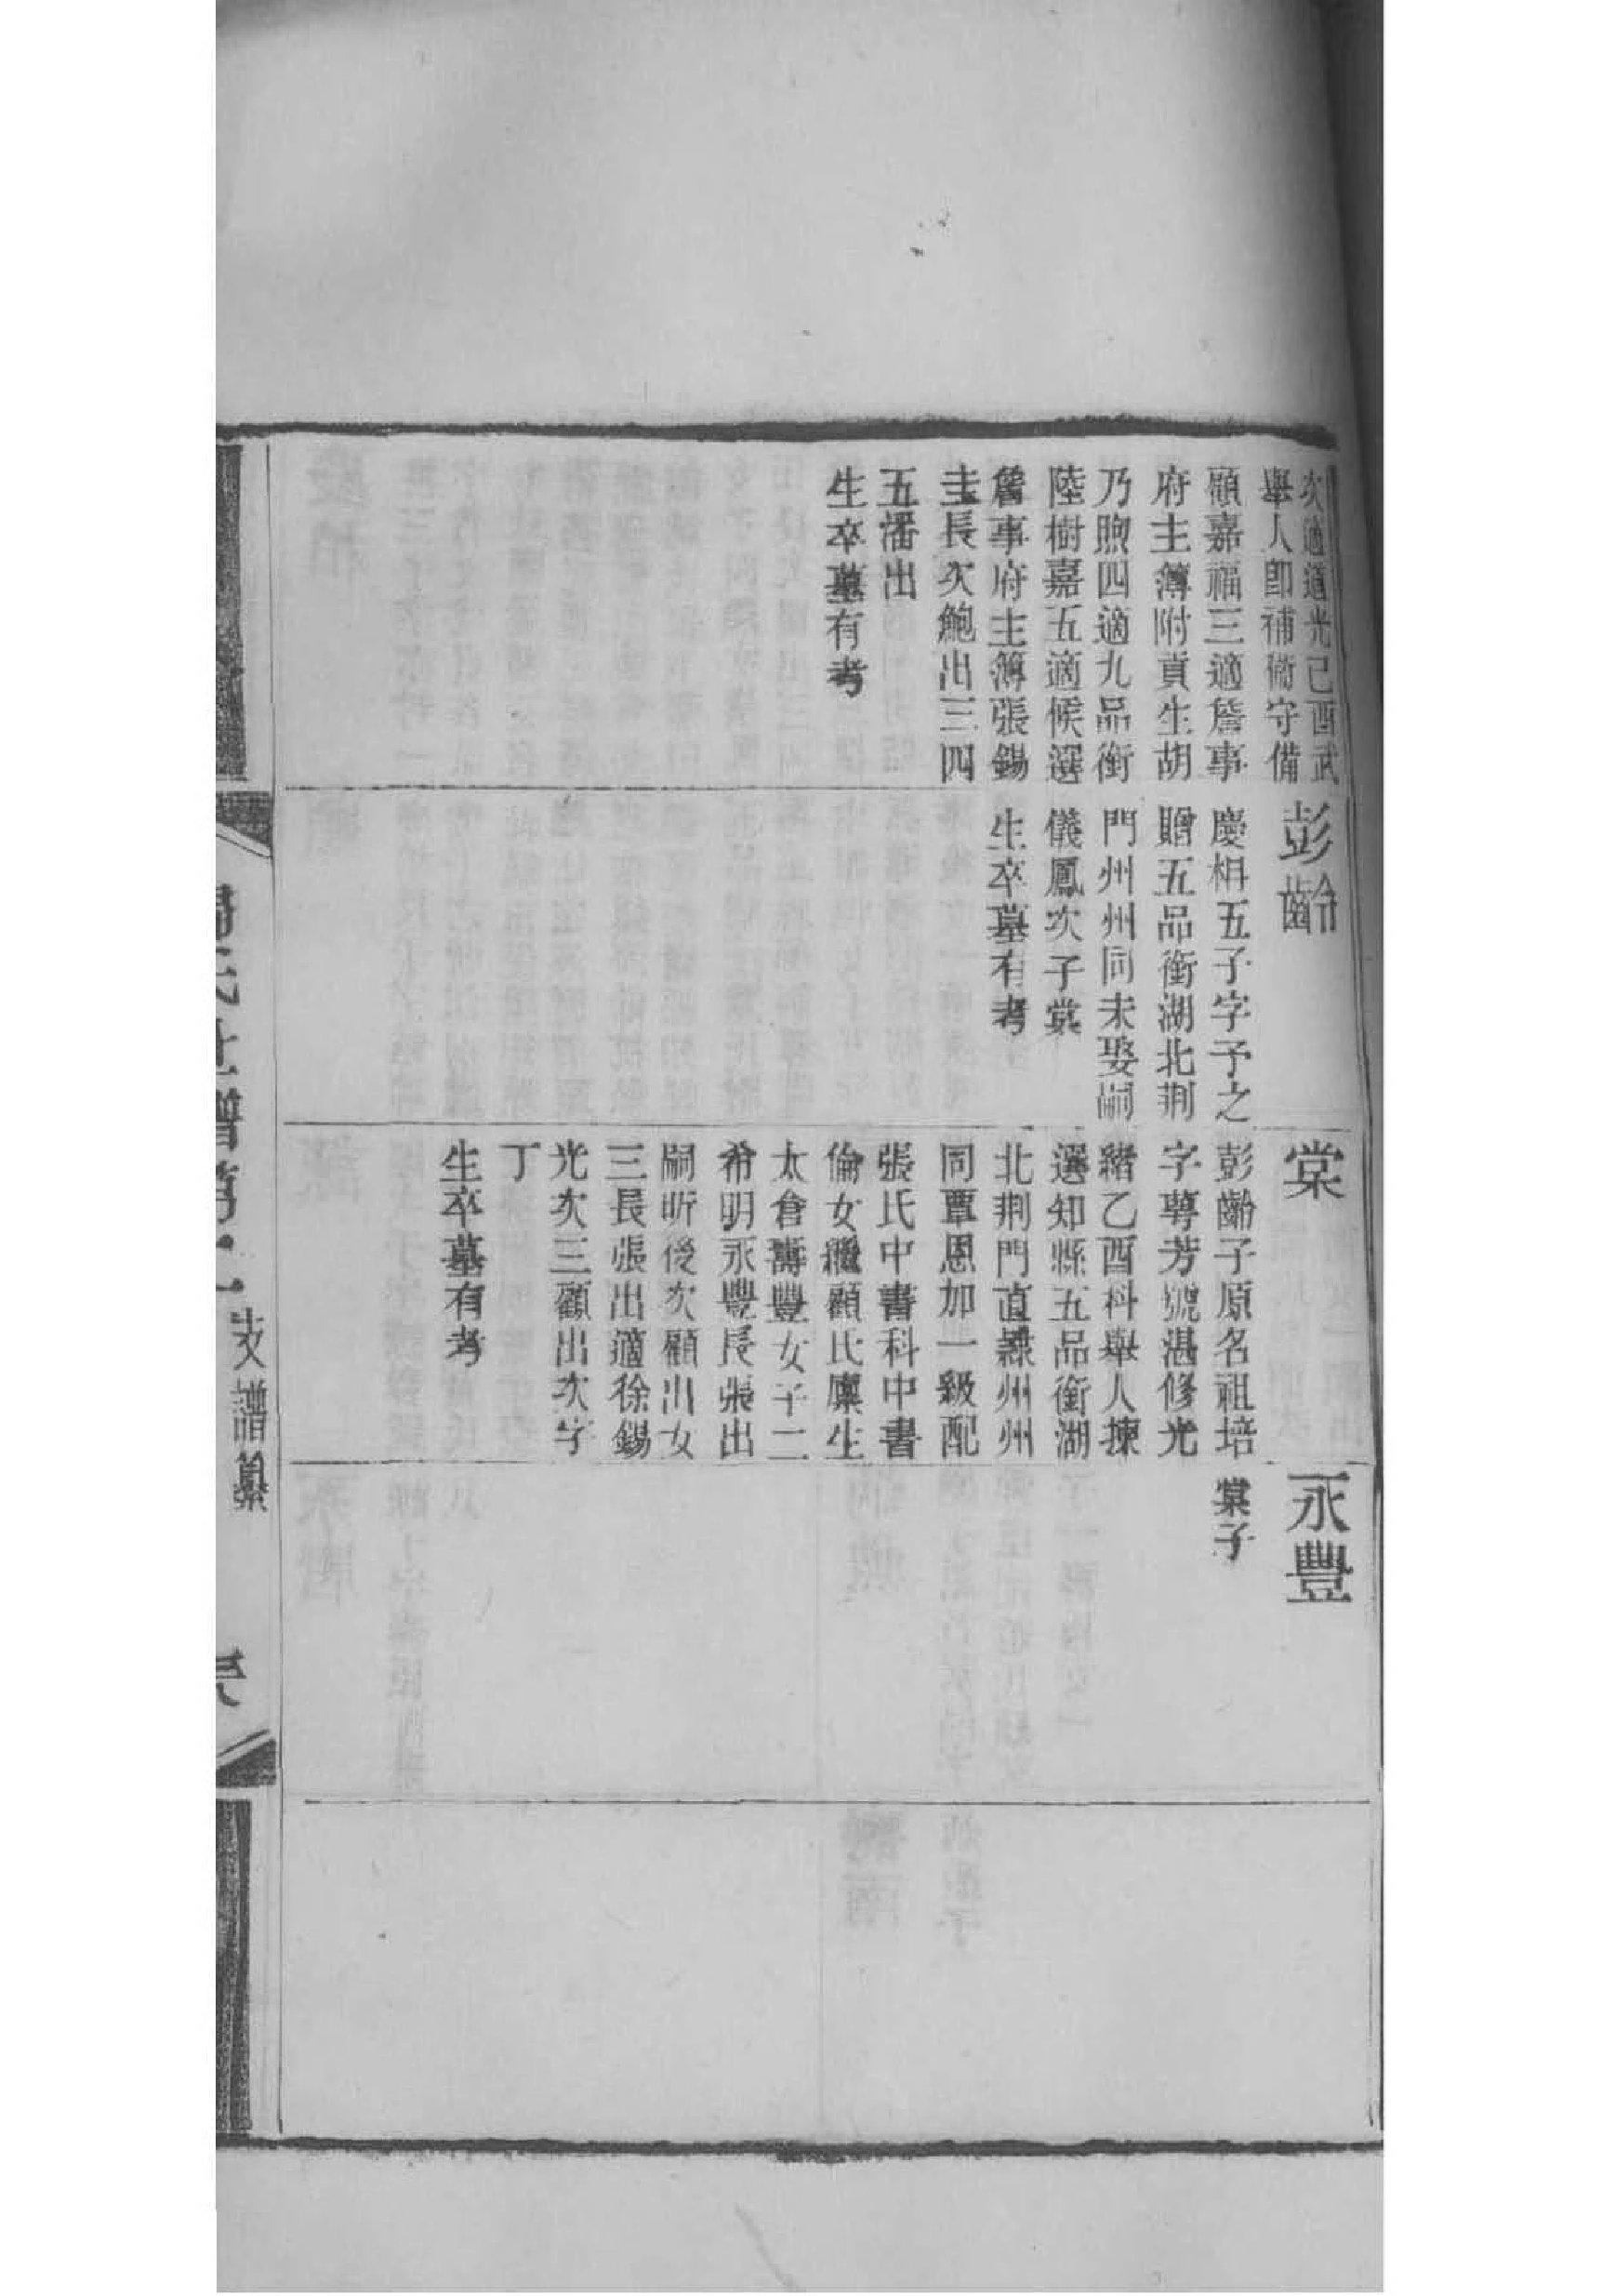 次適道光己酉武
舉人卽補衞守備
顧嘉福三適詹事
府主簿附貢生胡
乃煦四適九品銜
陸樹嘉五適候選
詹事府主簿張錫
圭長次鮑出三四
五潘出
生卒墓有考
彭齡
慶相五子字予之
贈五品銜湖北荆
門州州同未娶嗣
儀鳳次子棠
生卒墓有考
棠
彭齡子原名祖培
字蕚芳號湛修光
緖乙酉科舉人揀
選知縣五品銜湖
北荆門直隷州州
同覃恩加一級配
張氏中書科中書
倫女繼顧氏廩生
太倉壽豐女子二
希明永豐長張出
嗣昕後次顧出女
三長張出適徐錫
光次三顧出次字
丁
生卒墓有考
永豐
棠子
氏世譜第
支譜纂